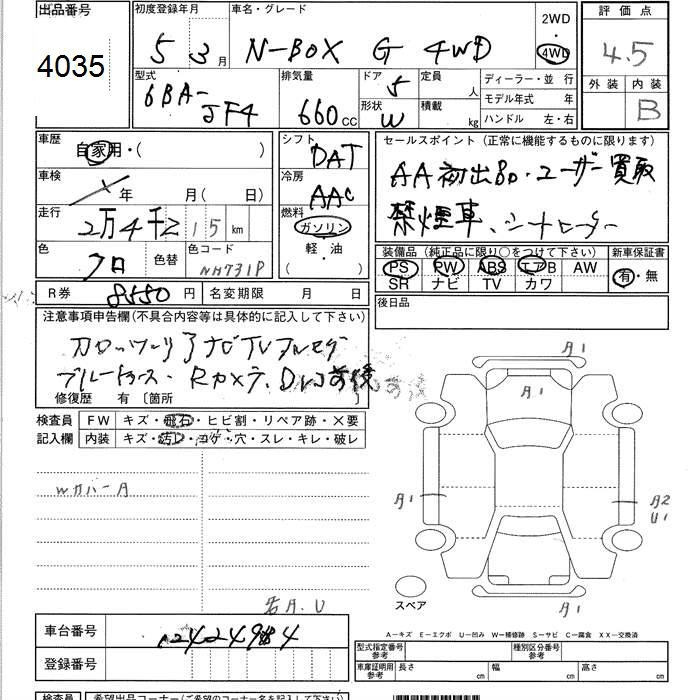 出品番号 初度登録年月 車名・グレード 2WD 評価点
4035 5 3月 N-BOX G 4WD 4WD 4.5
型式 排気量 ドア 定員 ディーラー・並 行 外装 内装
6BA-JF4 660cc 5 人 モデル年式 年 B
形状 積載 ハンドル 左・右
W kg
車歴 自家用・( ) シフト DAT セールスポイント (正常に機能するものに限ります)
車検 年 月( 日) 冷房 AAC AA初出品・ユーザー買取
走行 2万4千2 15 km 燃料 ガソリン 禁煙車、シートヒーター
軽・油
( )
色 クロ 色替 色コード NH731P
装備品 (純正品に限り○をつけて下さい) 新車保証書
PS PW ABS エアB AW 有・無
SR ナビ TV カワ
R券 8550円 名変期限 月 日 後日品
注意事項申告欄(不具合内容等は具体的に記入して下さい)
ナビTVフルセグ
ブルートゥース・Rカメラ、Dレコ前後
修復歴 有 〔箇所 〕
検査員 FW キズ・飛石・ヒビ割・リペア跡・×要
記入欄 内装 キズ・汚レ・コゲ・穴・スレ・キレ・破レ
Wカバー
A1
A1
A1 A2
U1
スペア A1
A.U
A-キズ E-エクボ U-凹み W-補修跡 S-サビ C-腐食 XX-交換済
車台番号 2424984
型式指定番号 参考 種別区分番号 参考
登録番号
車庫証明用 参考 長さ cm 幅 cm 高さ cm
検査員 希望出品コーナー